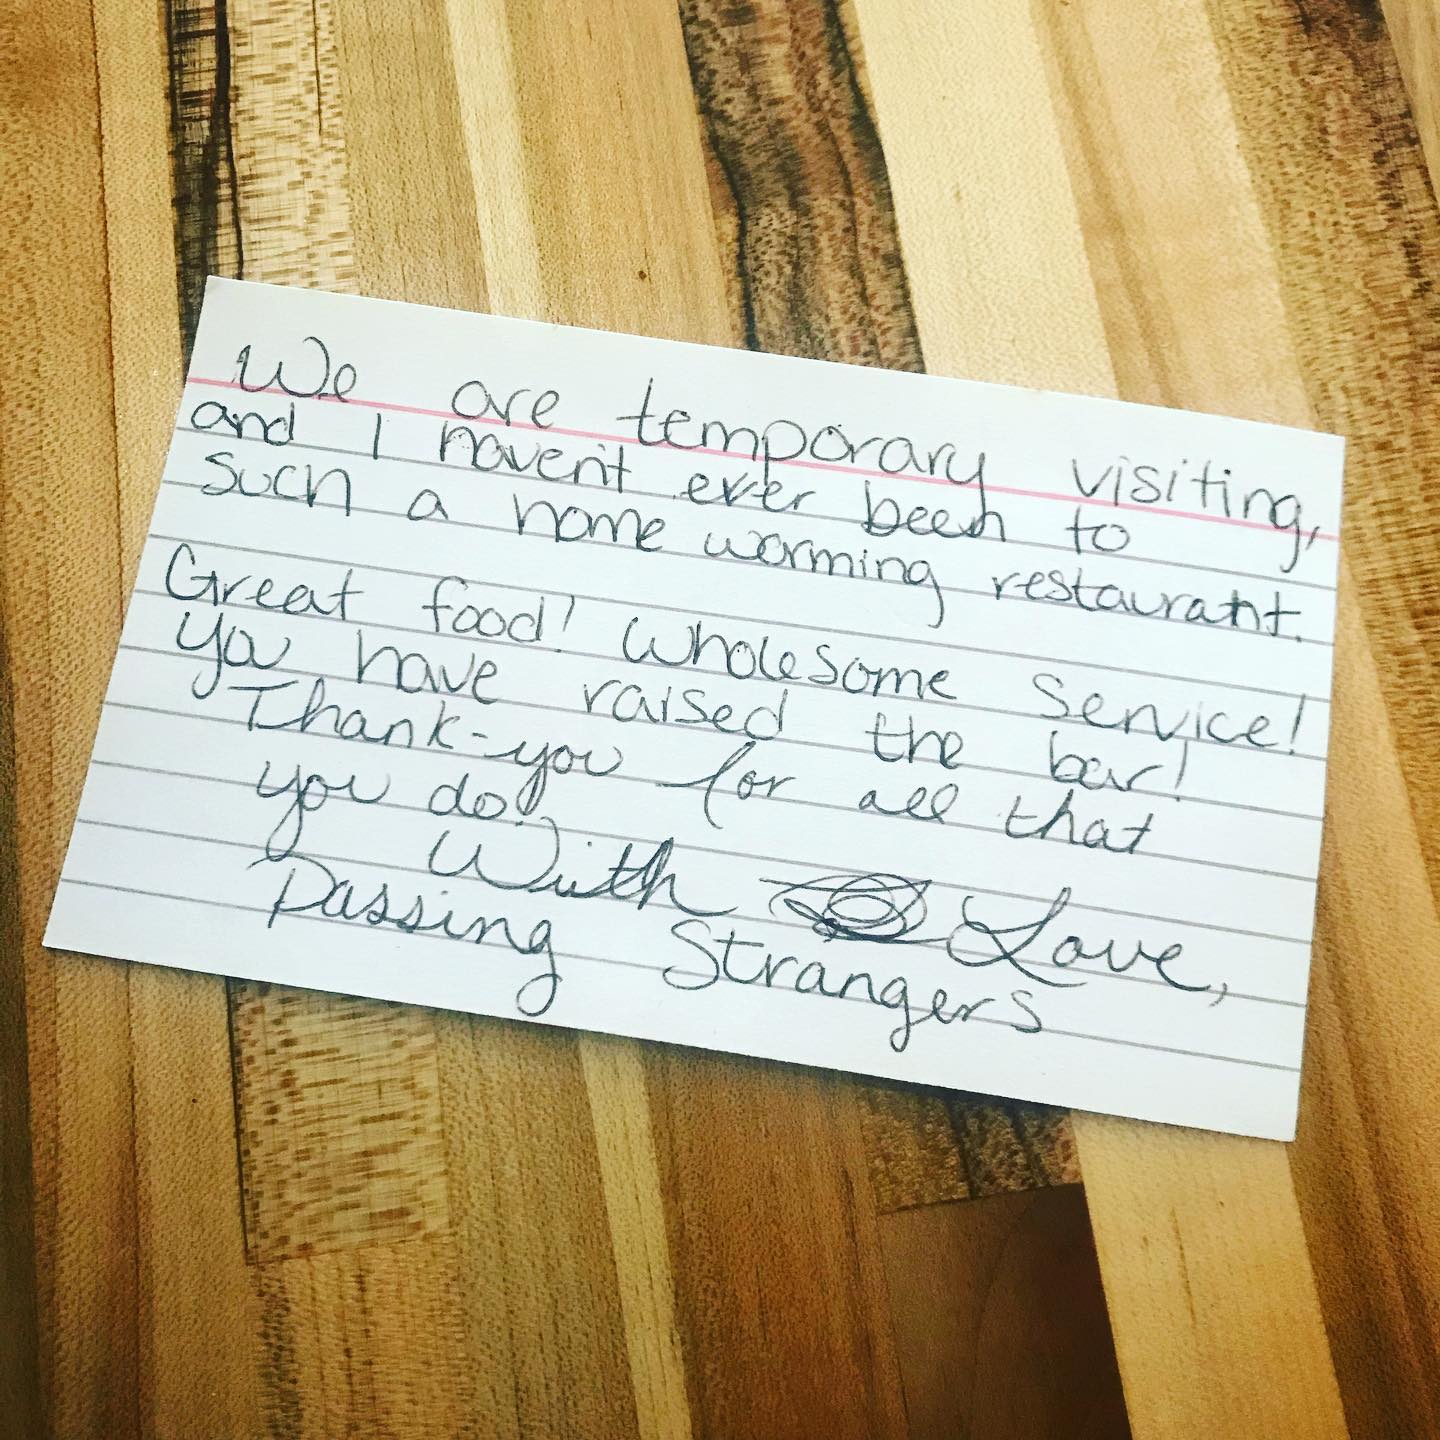 We are temporary visiting,
and I haven't ever been to
such a home worming restaurant.
Great food! Wholesome service!
You have raised the bar!
Thank-you for all that
you do!
With Love,
Passing Strangers